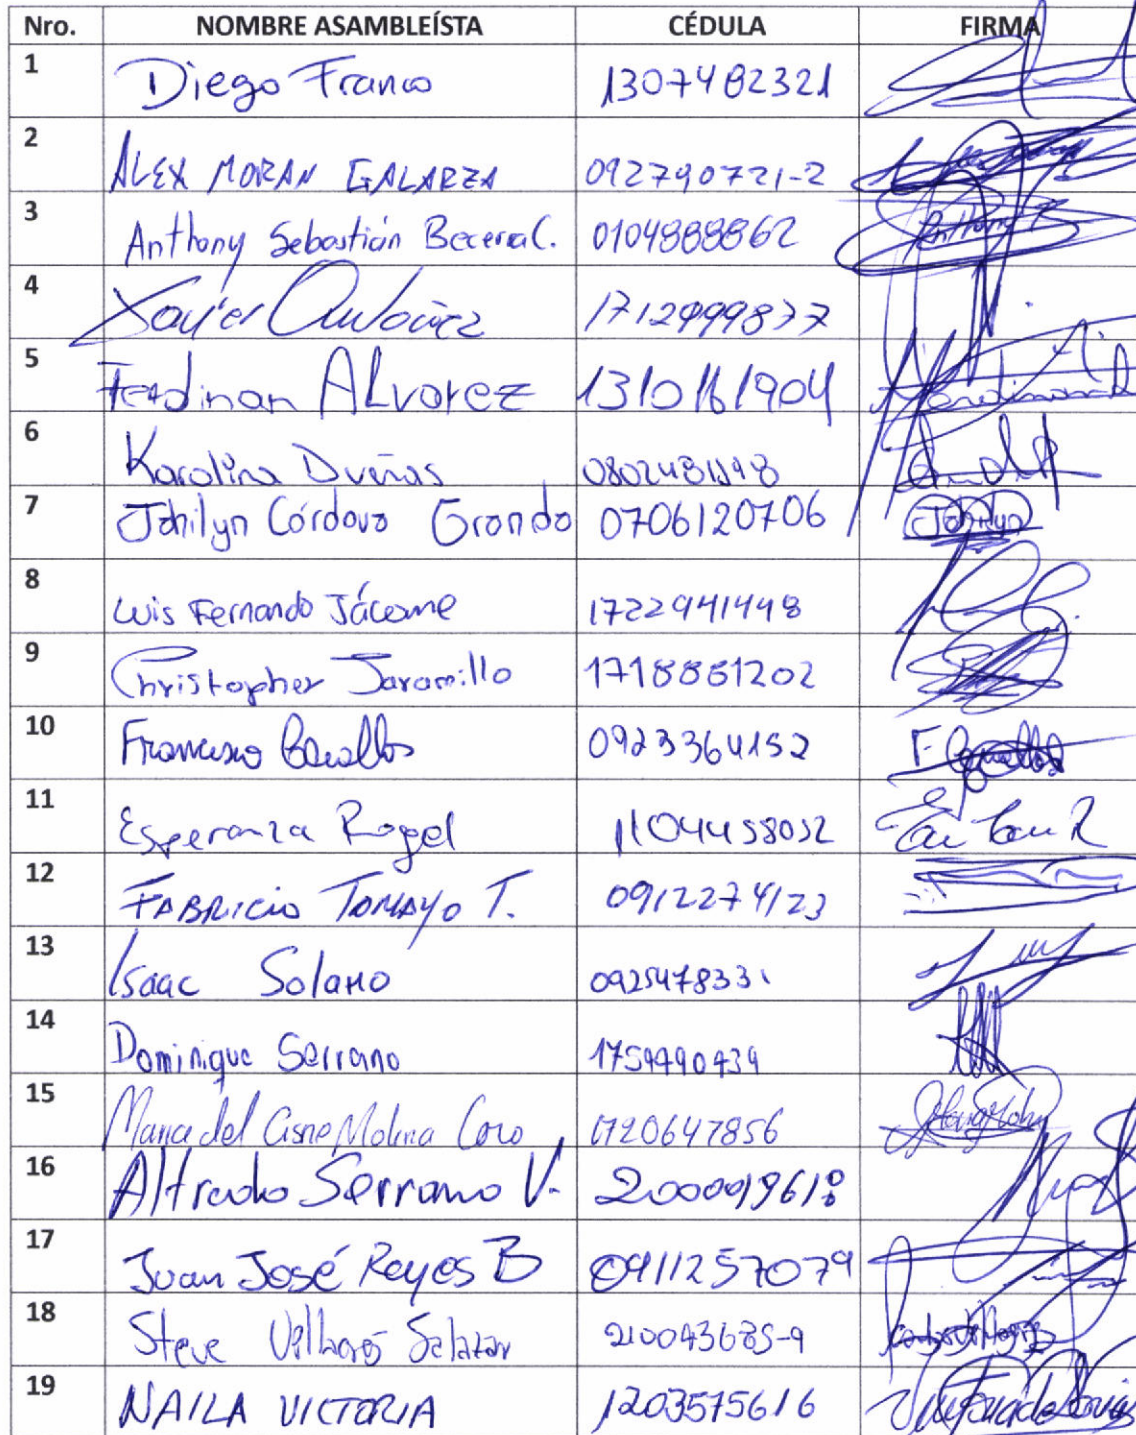 Nro. NOMBRE ASAMBLEÍSTA CÉDULA FIRMA
1 Diego Franco 1307482321
2 ALEX MORAN GALARZA 092790721-2
3 Anthony Sebastián Becerra C. 0104888862 Anthony B
4 Xavier 1712999837
5 Ferdinan Alvarez 1310161904 Ferdinand
6 Karolina Dueñas
7 Jahilyn Córdova Granda 0706120706 Jahilyn
8 Luis Fernando Jácome 1722941448
9 Christopher Jaramillo 1718881202
10 Francisco Cevallos 0923364152 F. Cevallos
11 Esperanza Rogel 1104458052
12 FABRICIO TAMAYO T. 0912274123
13 Isaac Solano
14 Dominique Serrano
15 Maria del Cisne Molina Coro 1720647856
16 Alfredo Serrano V. 2000019618
17 Juan José Reyes B 0911257079
18 Steve Salazar
19 NAILA VICTORIA 1203575616